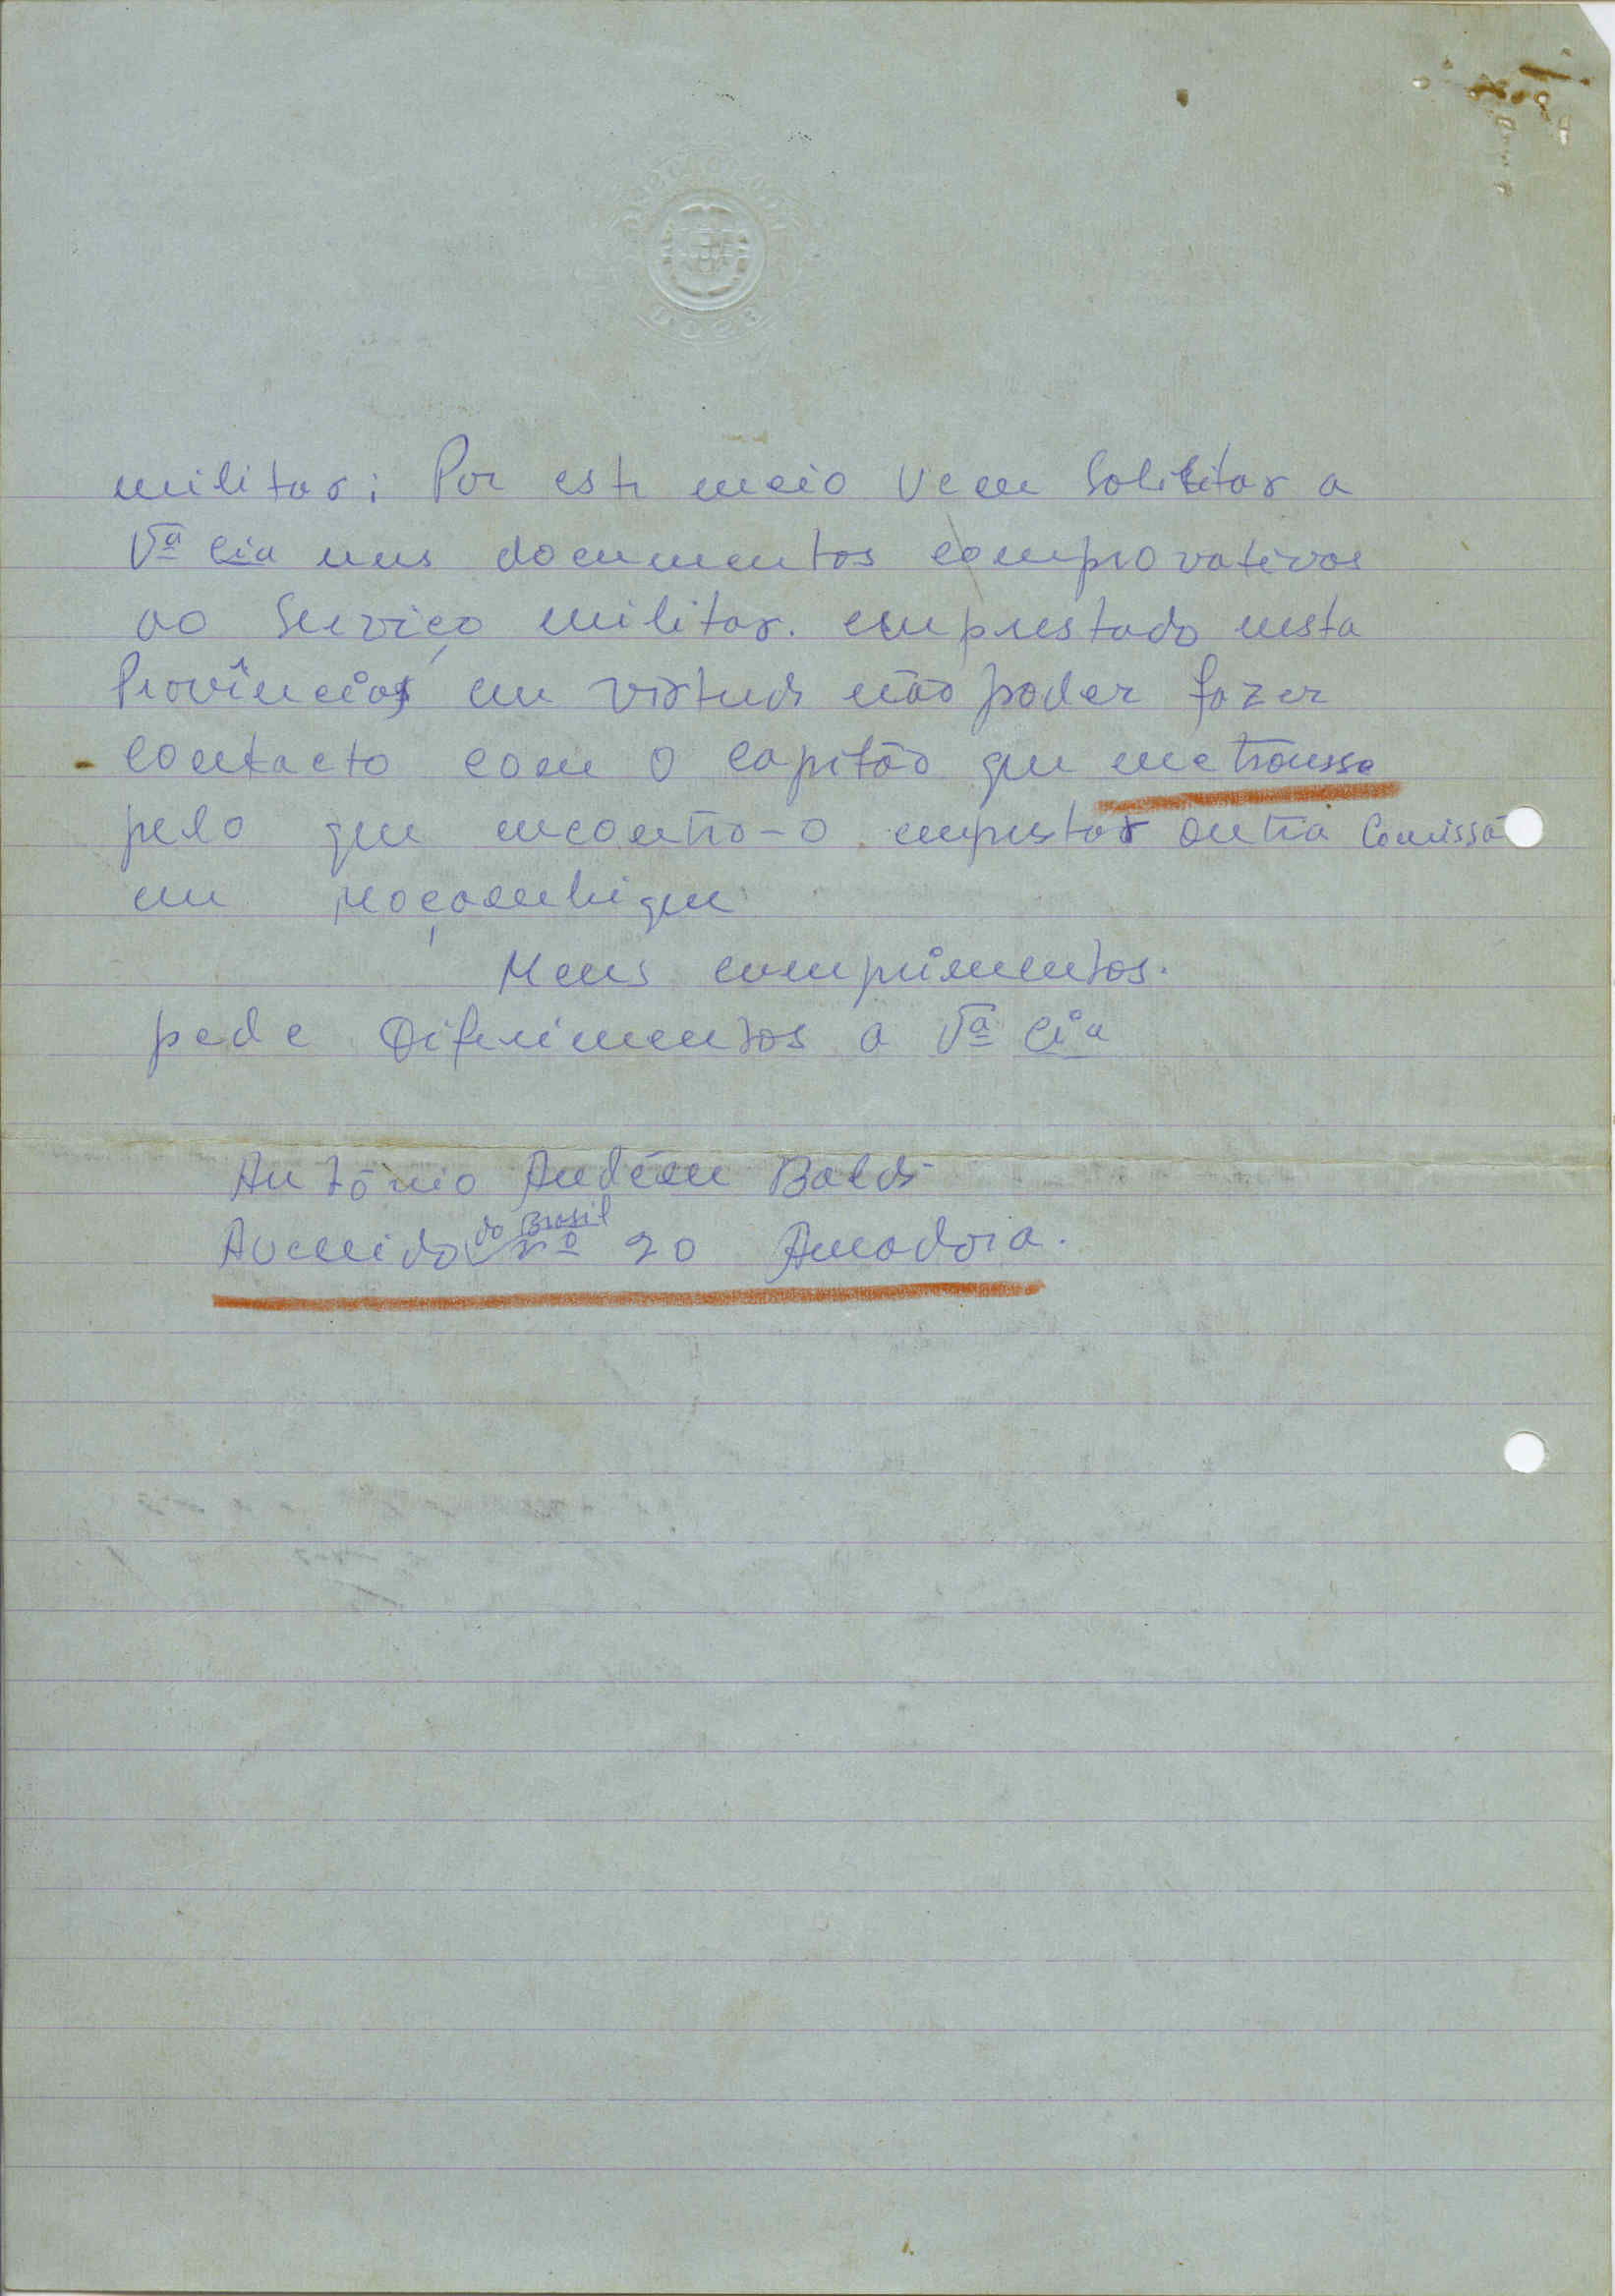 militar; Por este meio vem Solicitar a
Vª Cia uns documentos comprovativos
ao Serviço militar. emprestado nesta
Província, em virtude não poder fazer
contacto com o capitão que me trousse
pelo que encontra-o emprestar outra Comissão
em Moçambique
Meus comprimentos.
pede Diferimentos a Vª Cia
António Baldé
Avenida do Brasil nº 20 Amadora.